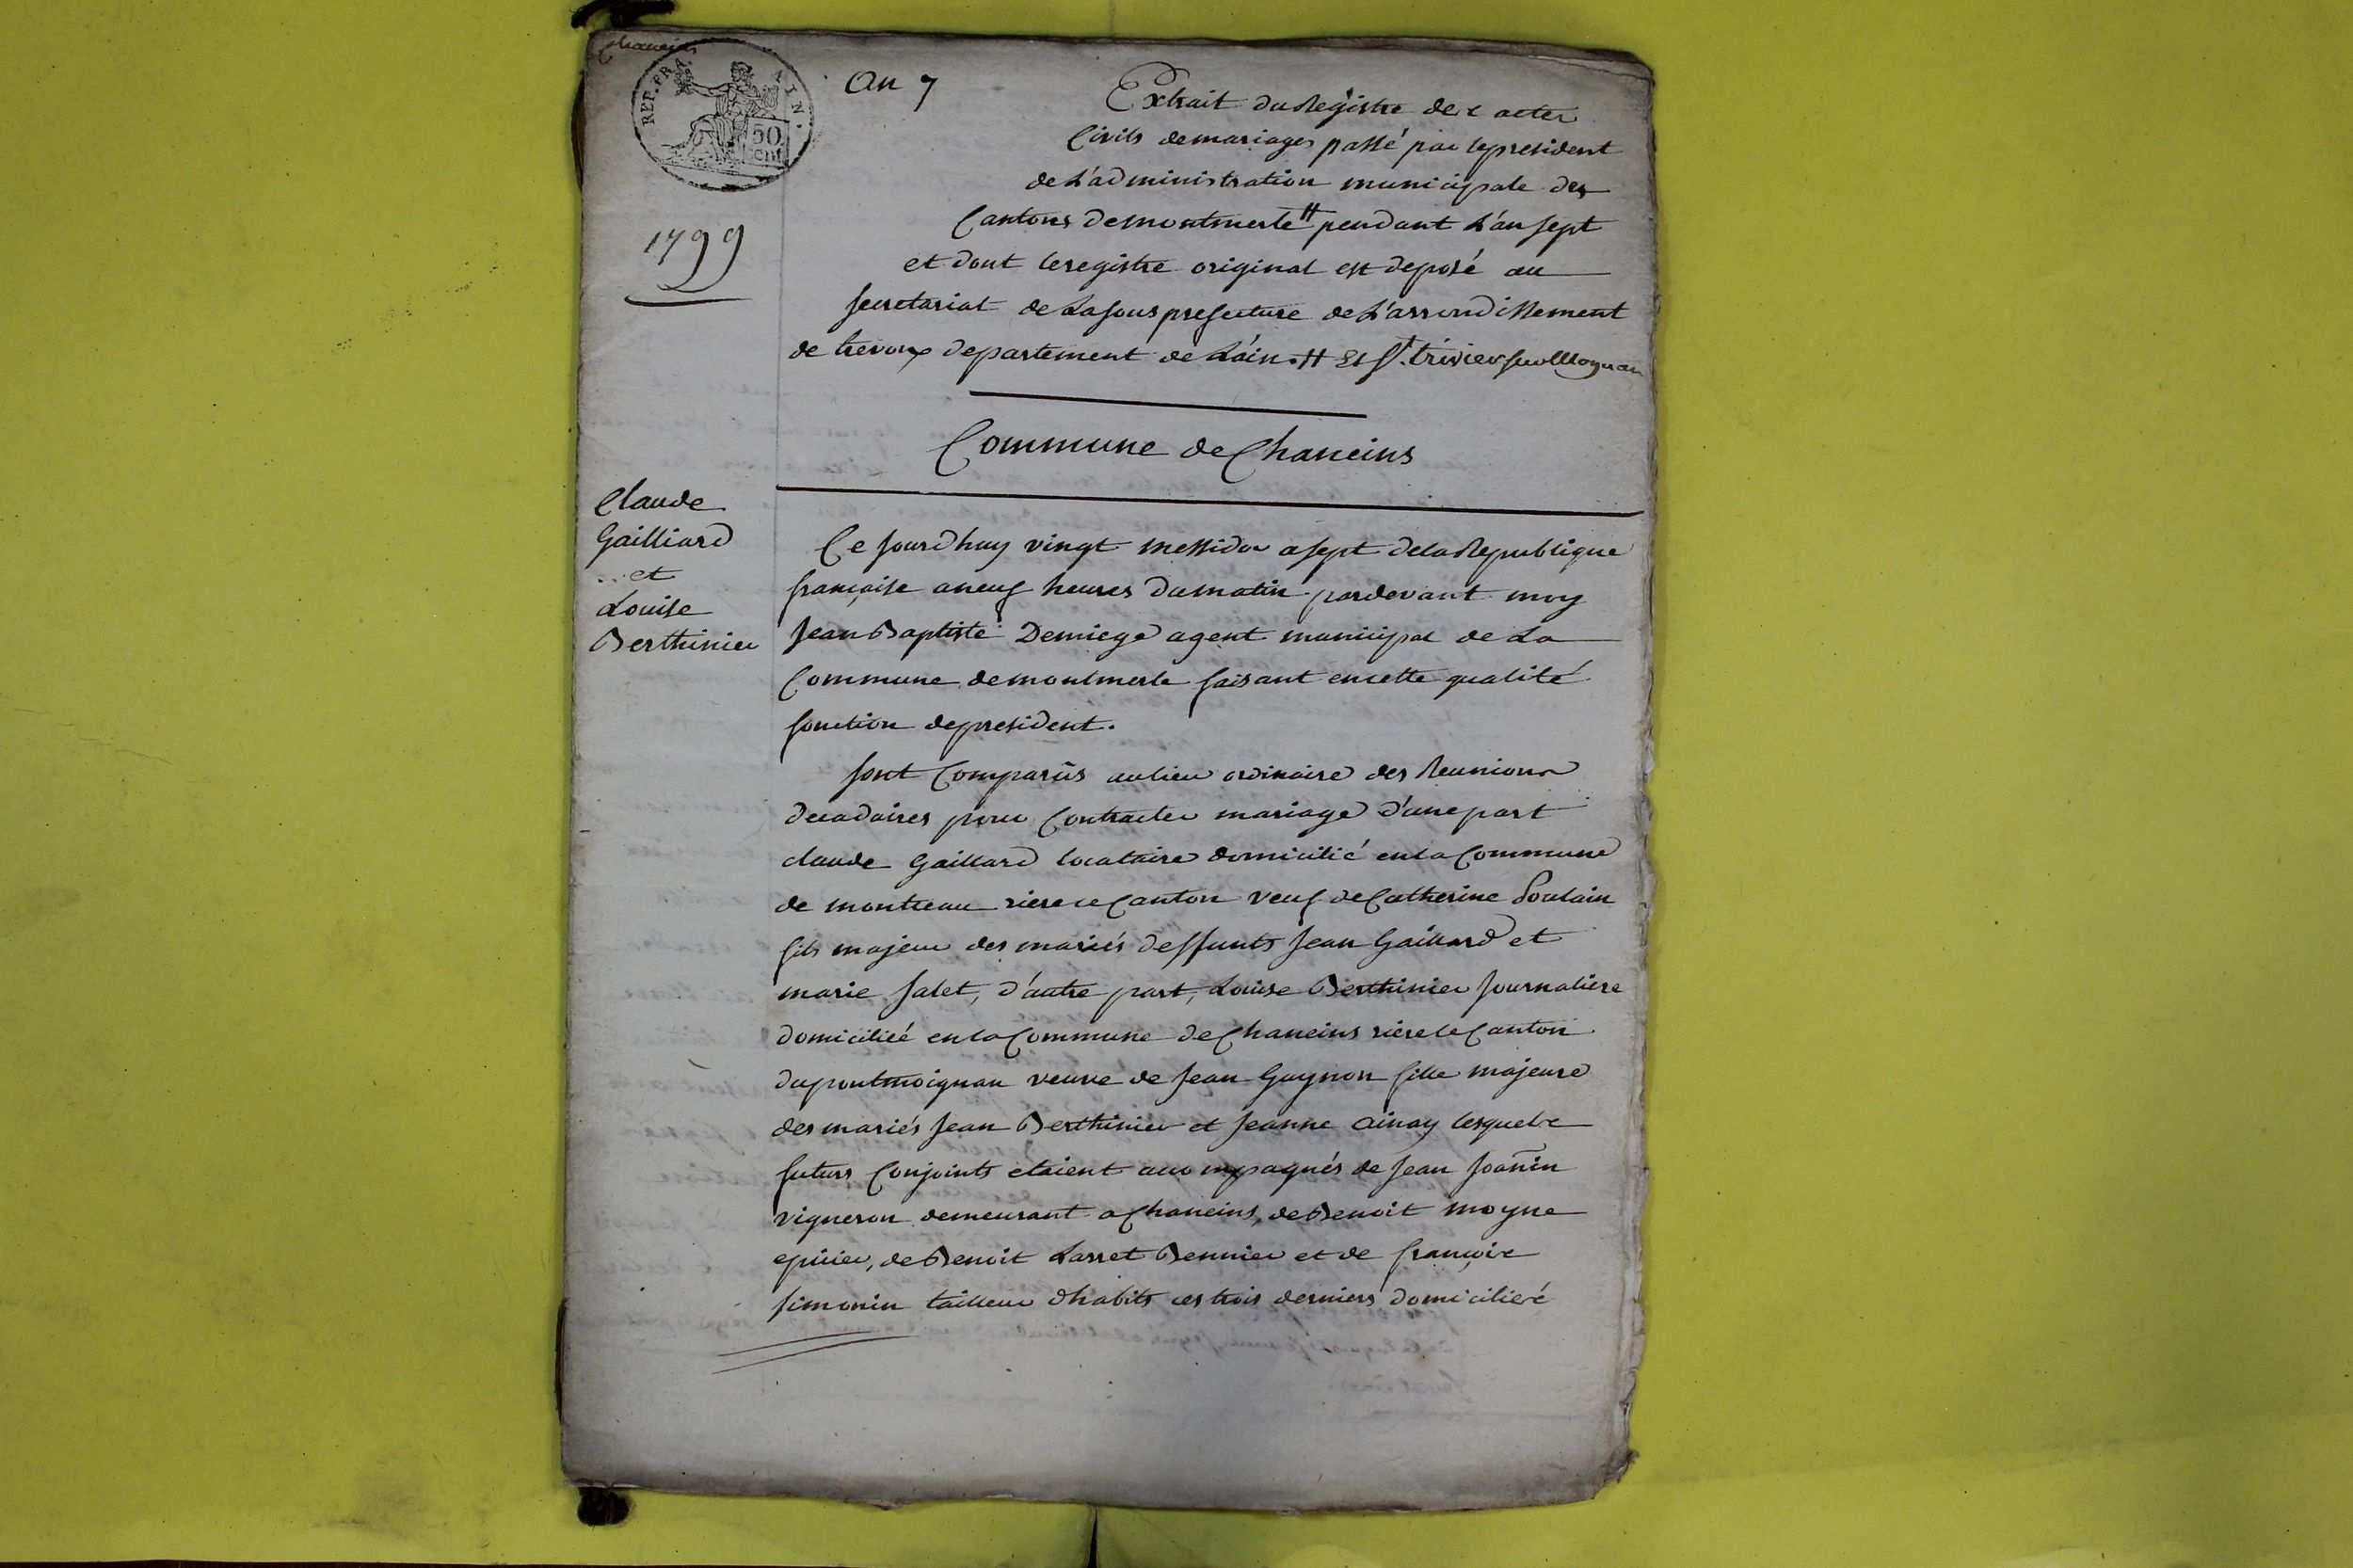 Chaneins
REP. FRA
A I N .
50
cent
An 7
1799
Extrait du Registre des actes
Civils de mariages passé par le president
de L'administration municipale des
Cantons de montmerle # pendant L'an sept
et dont le registre original est deposé au
secretariat de La sous prefecture de L'arrondissement
de trevoux departement de L'ain. # Et St. trivier sur Moignan
Commune de Chaneins
Claude
Gailliard
et
Louise
Berthinier
Ce Jourdhuy vingt messidor a sept de la Republique
française a neuf heures du matin pardevant moy
Jean Baptiste Demiege agent municipal de La
Commune de montmerle faisant en cette qualité
fonction de president.
sont Comparûs au lieu ordinaire des Reunions
decadaires pour Contracter mariage d'une part
claude Gaillard locataire domicilié en la Commune
de montceau riere ce Canton veuf de Catherine Poulain
fils majeur des mariés deffunts Jean Gaillard et
marie salet, d'autre part, Louise Berthinier Journaliere
domiciliée en la Commune de Chaneins riere le Canton
du pont moignan veuve de Jean Guynon fille majeure
des mariés Jean Berthinier et Jeanne ainay lesquels
futurs Conjoints etaient accompagnés de Jean Joanin
vigneron demeurant a Chaneins, de Benoit moyne
epicier, de Benoit Larret Bennier et de françois
simonin tailleur d'habits ces trois derniers domiciliés